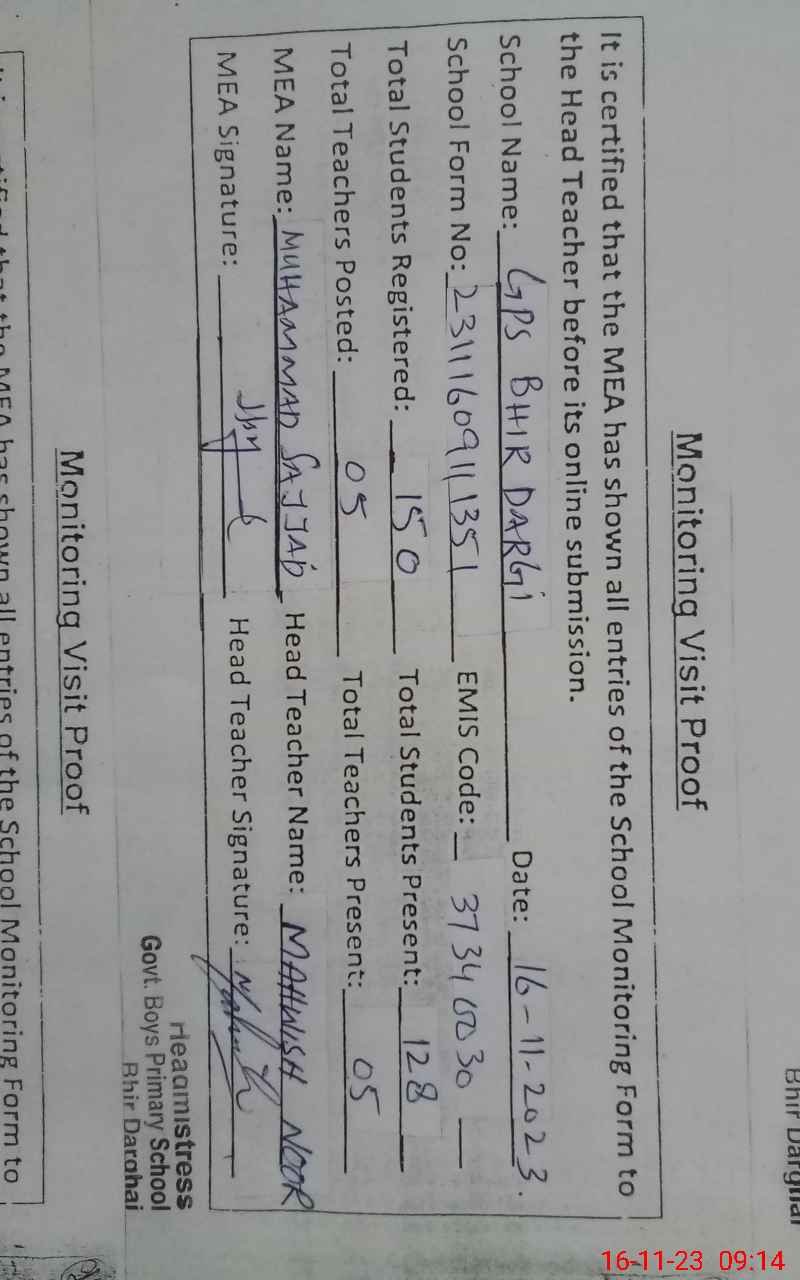 Bhir Darghai
Monitoring Visit Proof
It is certified that the MEA has shown all entries of the School Monitoring Form to
the Head Teacher before its online submission.
School Name: GPS BHIR DARGI Date: 16-11-2023.
School Form No: 231116091135 1 EMIS Code: 373460030
Total Students Registered: 150 Total Students Present: 128
Total Teachers Posted: 05 Total Teachers Present: 05
MEA Name: MUHAMMAD SAJJAD Head Teacher Name: MAHWISH NOOR
MEA Signature: Head Teacher Signature:
Headmistress
Govt. Boys Primary School
Bhir Darghai
Monitoring Visit Proof
that the MEA has shown all entries of the School Monitoring Form to
16-11-23 09:14